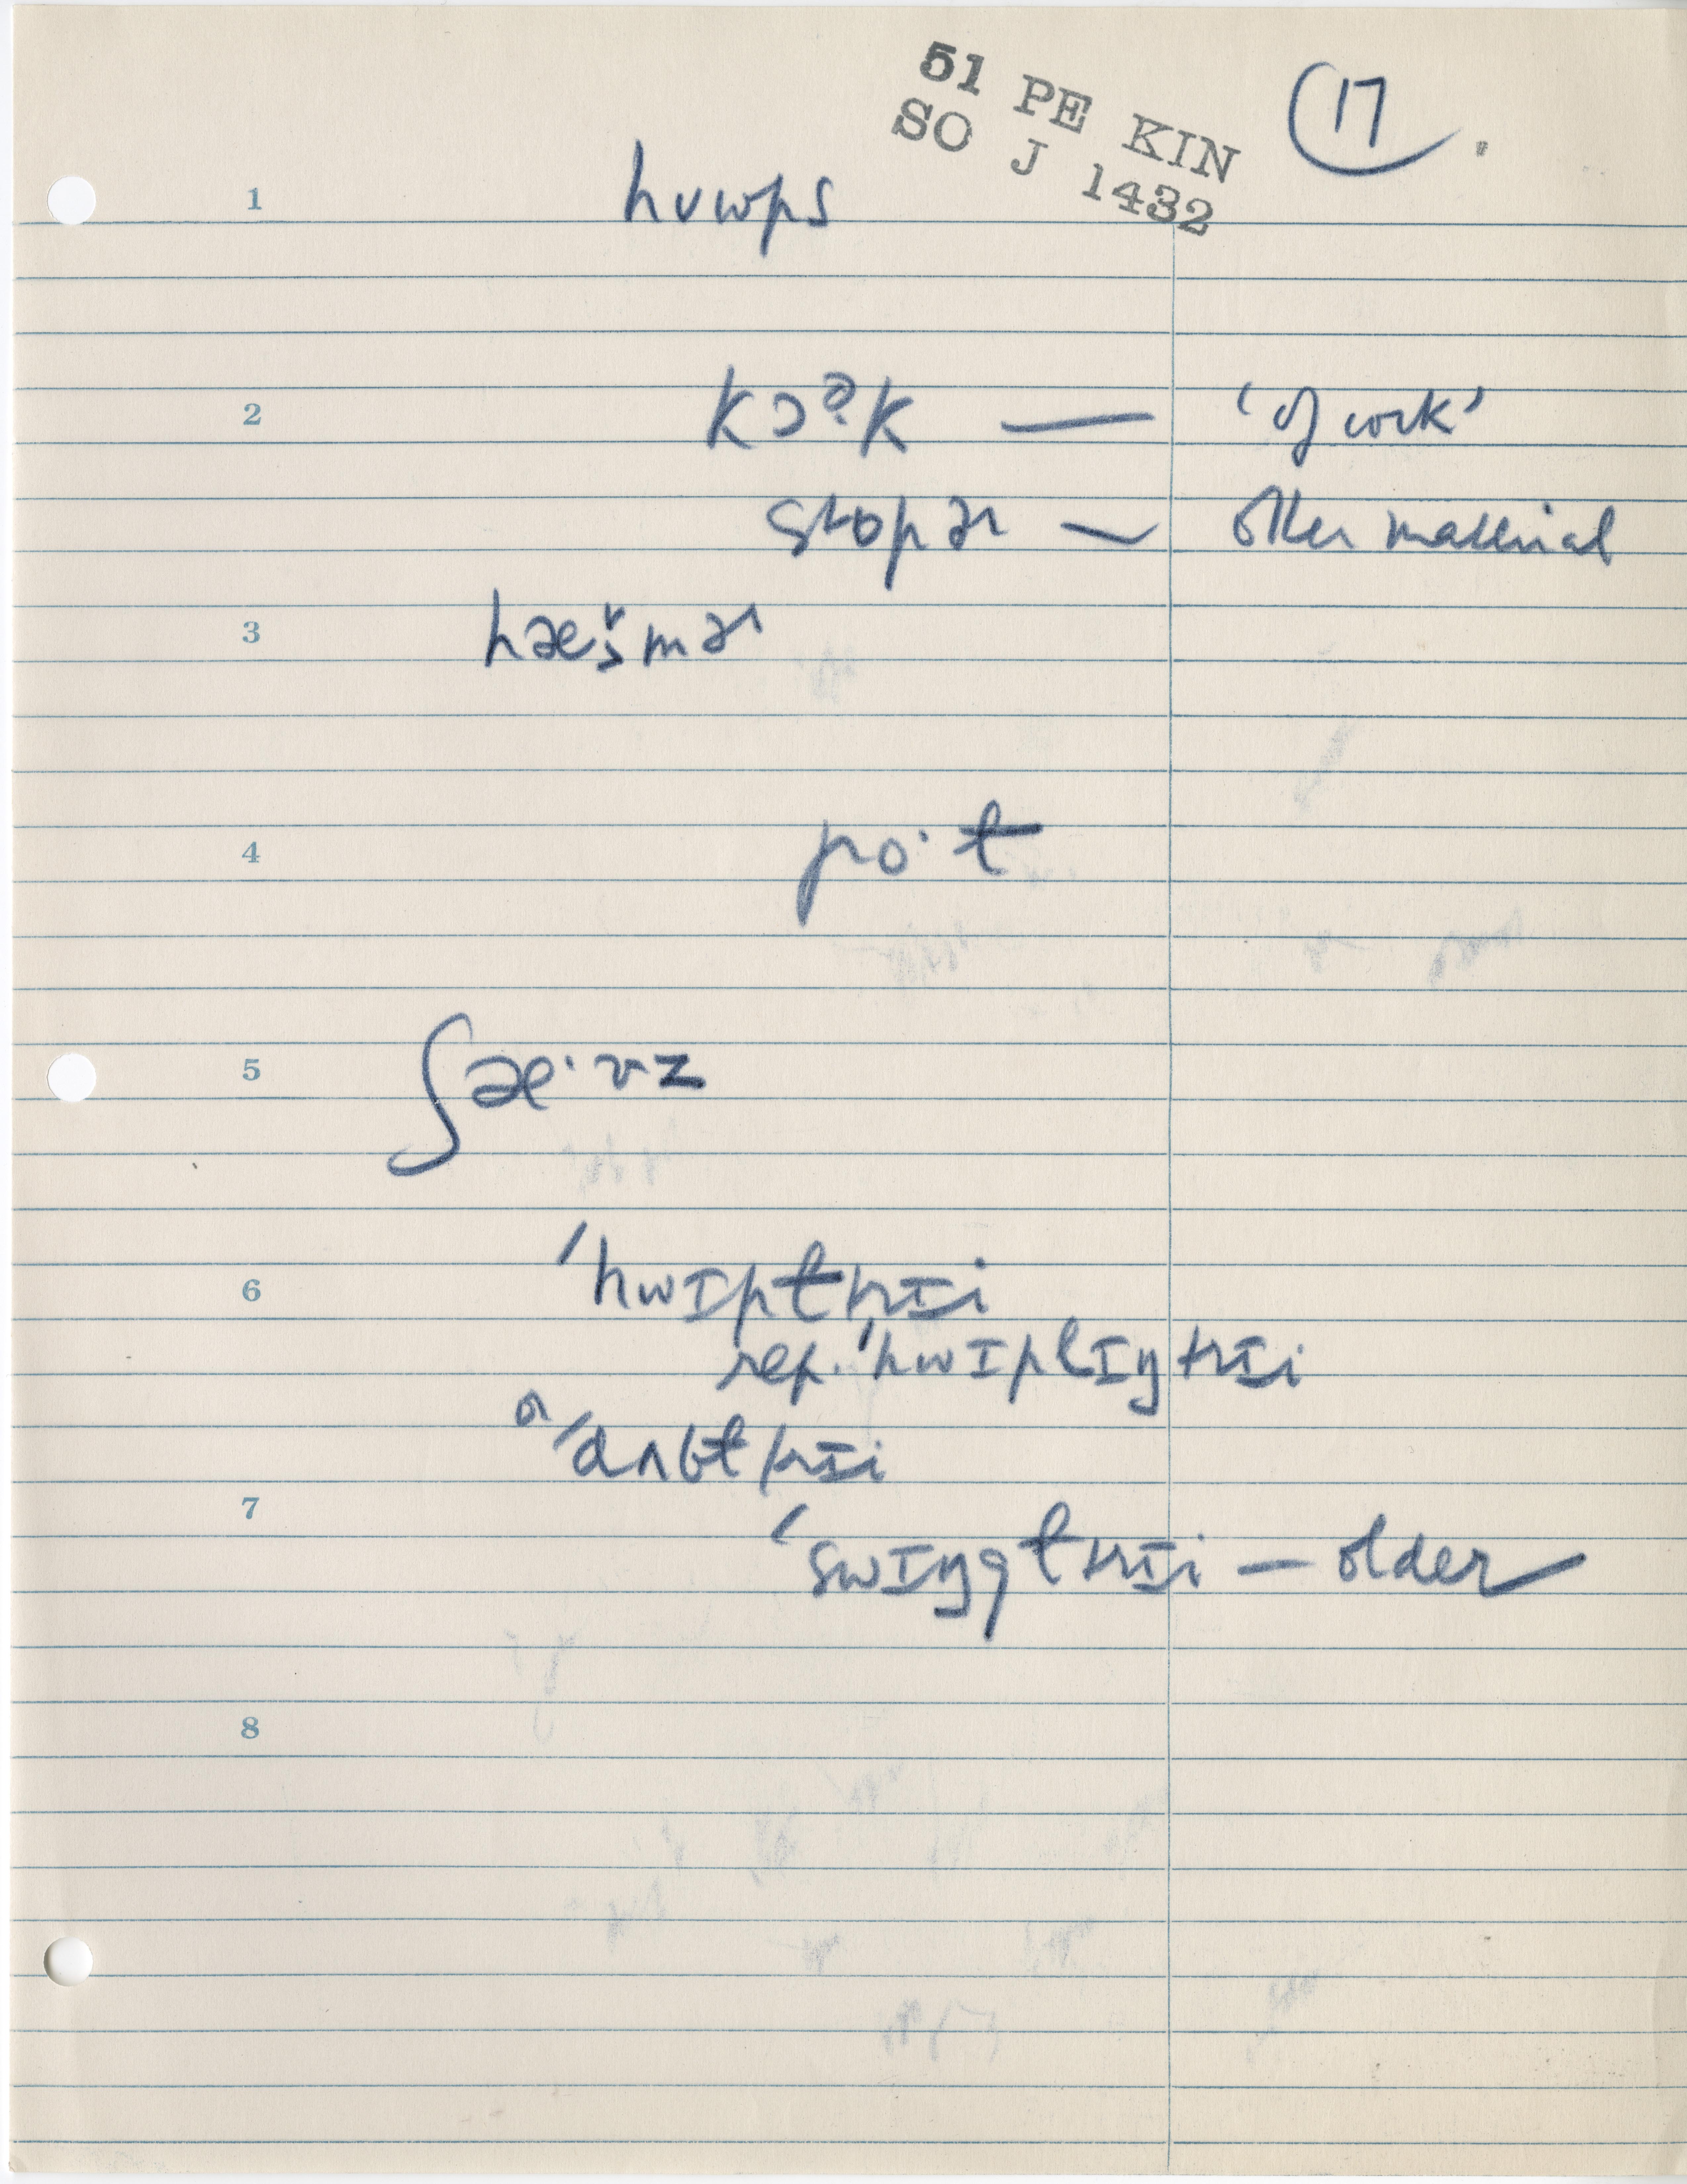 51 PE KIN
SO J 1432
17
1 hʊwps
2 kɔˀk — 'of cork'
stopɚ — other material
3 hæšmɚ
4 po·t
5 ʃæ·vz
6 ˈhwɪptrɪi
rep. ˈhwɪplɪŋtrɪi
or ˈdʌbtrɪi
7 ˈswɪŋgtrɪi — older
8